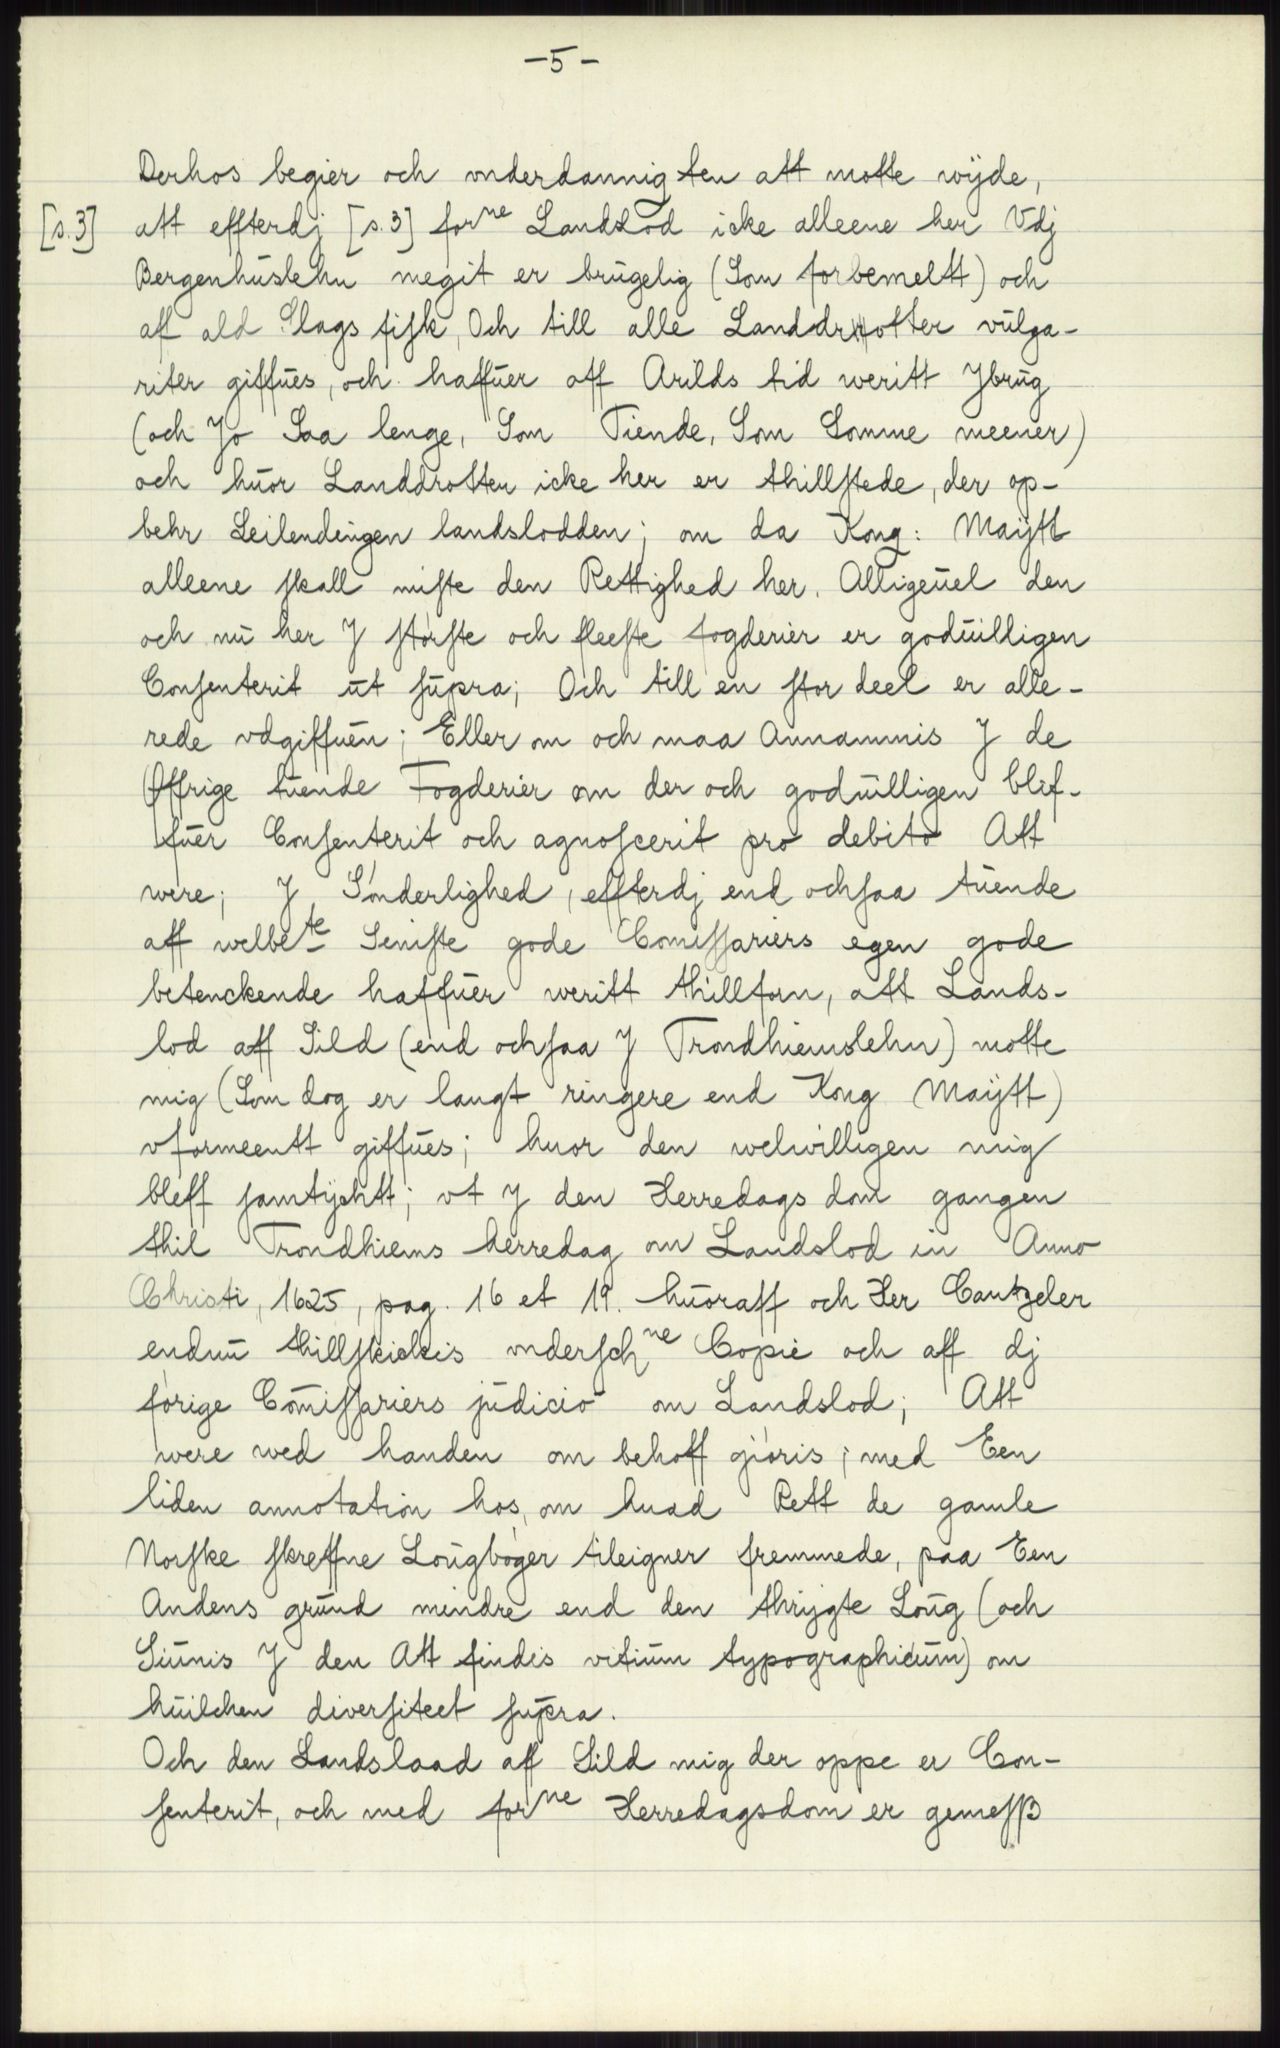 -5-
Derhos begier och vnderdannigsten att motte wijde,
[s.3] att effterdj [s.3] forne Landslod icke alleene her Vdj
Bergenhuslehn megit er brugelig (Som forbemeltt) och
aff ald Slags fisk, Och till alle Landdrotter vulga-
riter giffues, och haffuer aff Arilds tid weritt Jbrug
(och Jo Saa lenge, Som Tiende, Som Somme meener)
och huor Landdrotten icke her er thillstede, der op-
behr Leilendingen landslodden; om da Kong: Maijtt
alleene skall miste den Rettighed her. Alligeuel den
och nu her J største och fleeste fogderier er goduilligen
Consenterit ut supra; Och till en stor deel er alle-
rede vdgiffuen; Eller om och maa Annammis J de
Øffrige tuende Fogderier om der och goduilligen blif-
fuer Consenterit och agnoscerit pro debito Att
were; J Sønderlighed, effterdj end ochsaa tuende
aff welbete Seniste gode Comissariers egen gode
betenckende haffuer weritt thillforn, att Lands-
lod aff Sild (end ochsaa J Trondhiemslehn) motte
mig (Som dog er langt ringere end Kong Maijtt)
vformeentt giffues; huor den welwilligen mig
bleff samtÿchtt; vt J den Herredags dom gangen
thil Trondhiems herredag om Landslod in Anno
Christi, 1625, pag. 16 et 19. huoraff och Her Cantzeler
endnu thillskickis vnderschne Copie och aff dj
førige Comissariers judicio om Landslod; Att
were wed handen om behoff giøris; med Een
liden annotation hos, om huad Rett de gamle
Norske skreffne Lougbøger tileigner fremmede, paa Een
Andens grund mindre end den thrÿgte Loug (och
Siunis J den Att findis vitium typographicum) om
huilchen diversiteet supra.
Och den Landslaad aff Sild mig der oppe er Con-
senterit, och med forne Herredagsdom er gemess